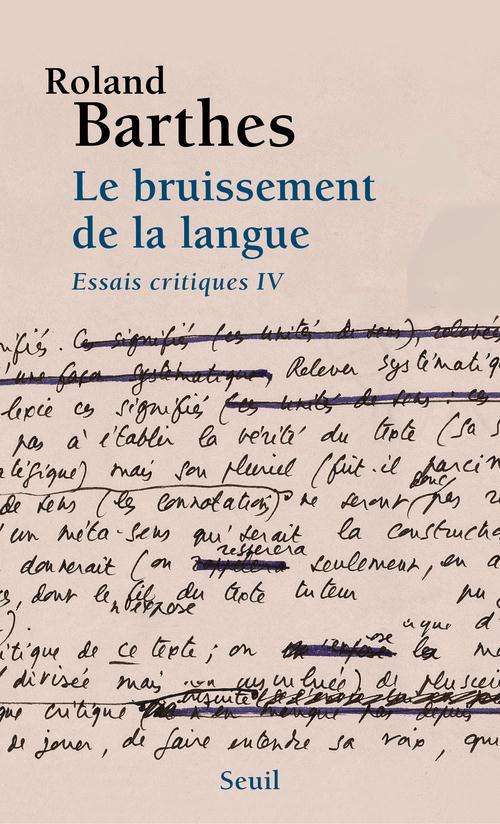 Roland
Barthes
Le bruissement
de la langue
Essais critiques IV
nifiés. Ces signifiés (ces unités de sens), relevés
d'une façon systématique, Relever systématiq
lexie ces signifiés (ces unités de sens : ces
pas à établir la vérité du texte (sa s
atégique) mais son pluriel (fût-il parcim
donc
de sens (les connotation) ne seront pas
d'un méta-sens qui serait la constructio
resterera
donnerait (on seulement, en a
, dont le fil du texte tuteur
n'expose
itique de ce texte ; on la
divisée mais de
ensuite
que critique
de jouer, de faire entendre sa voix, qui
Seuil